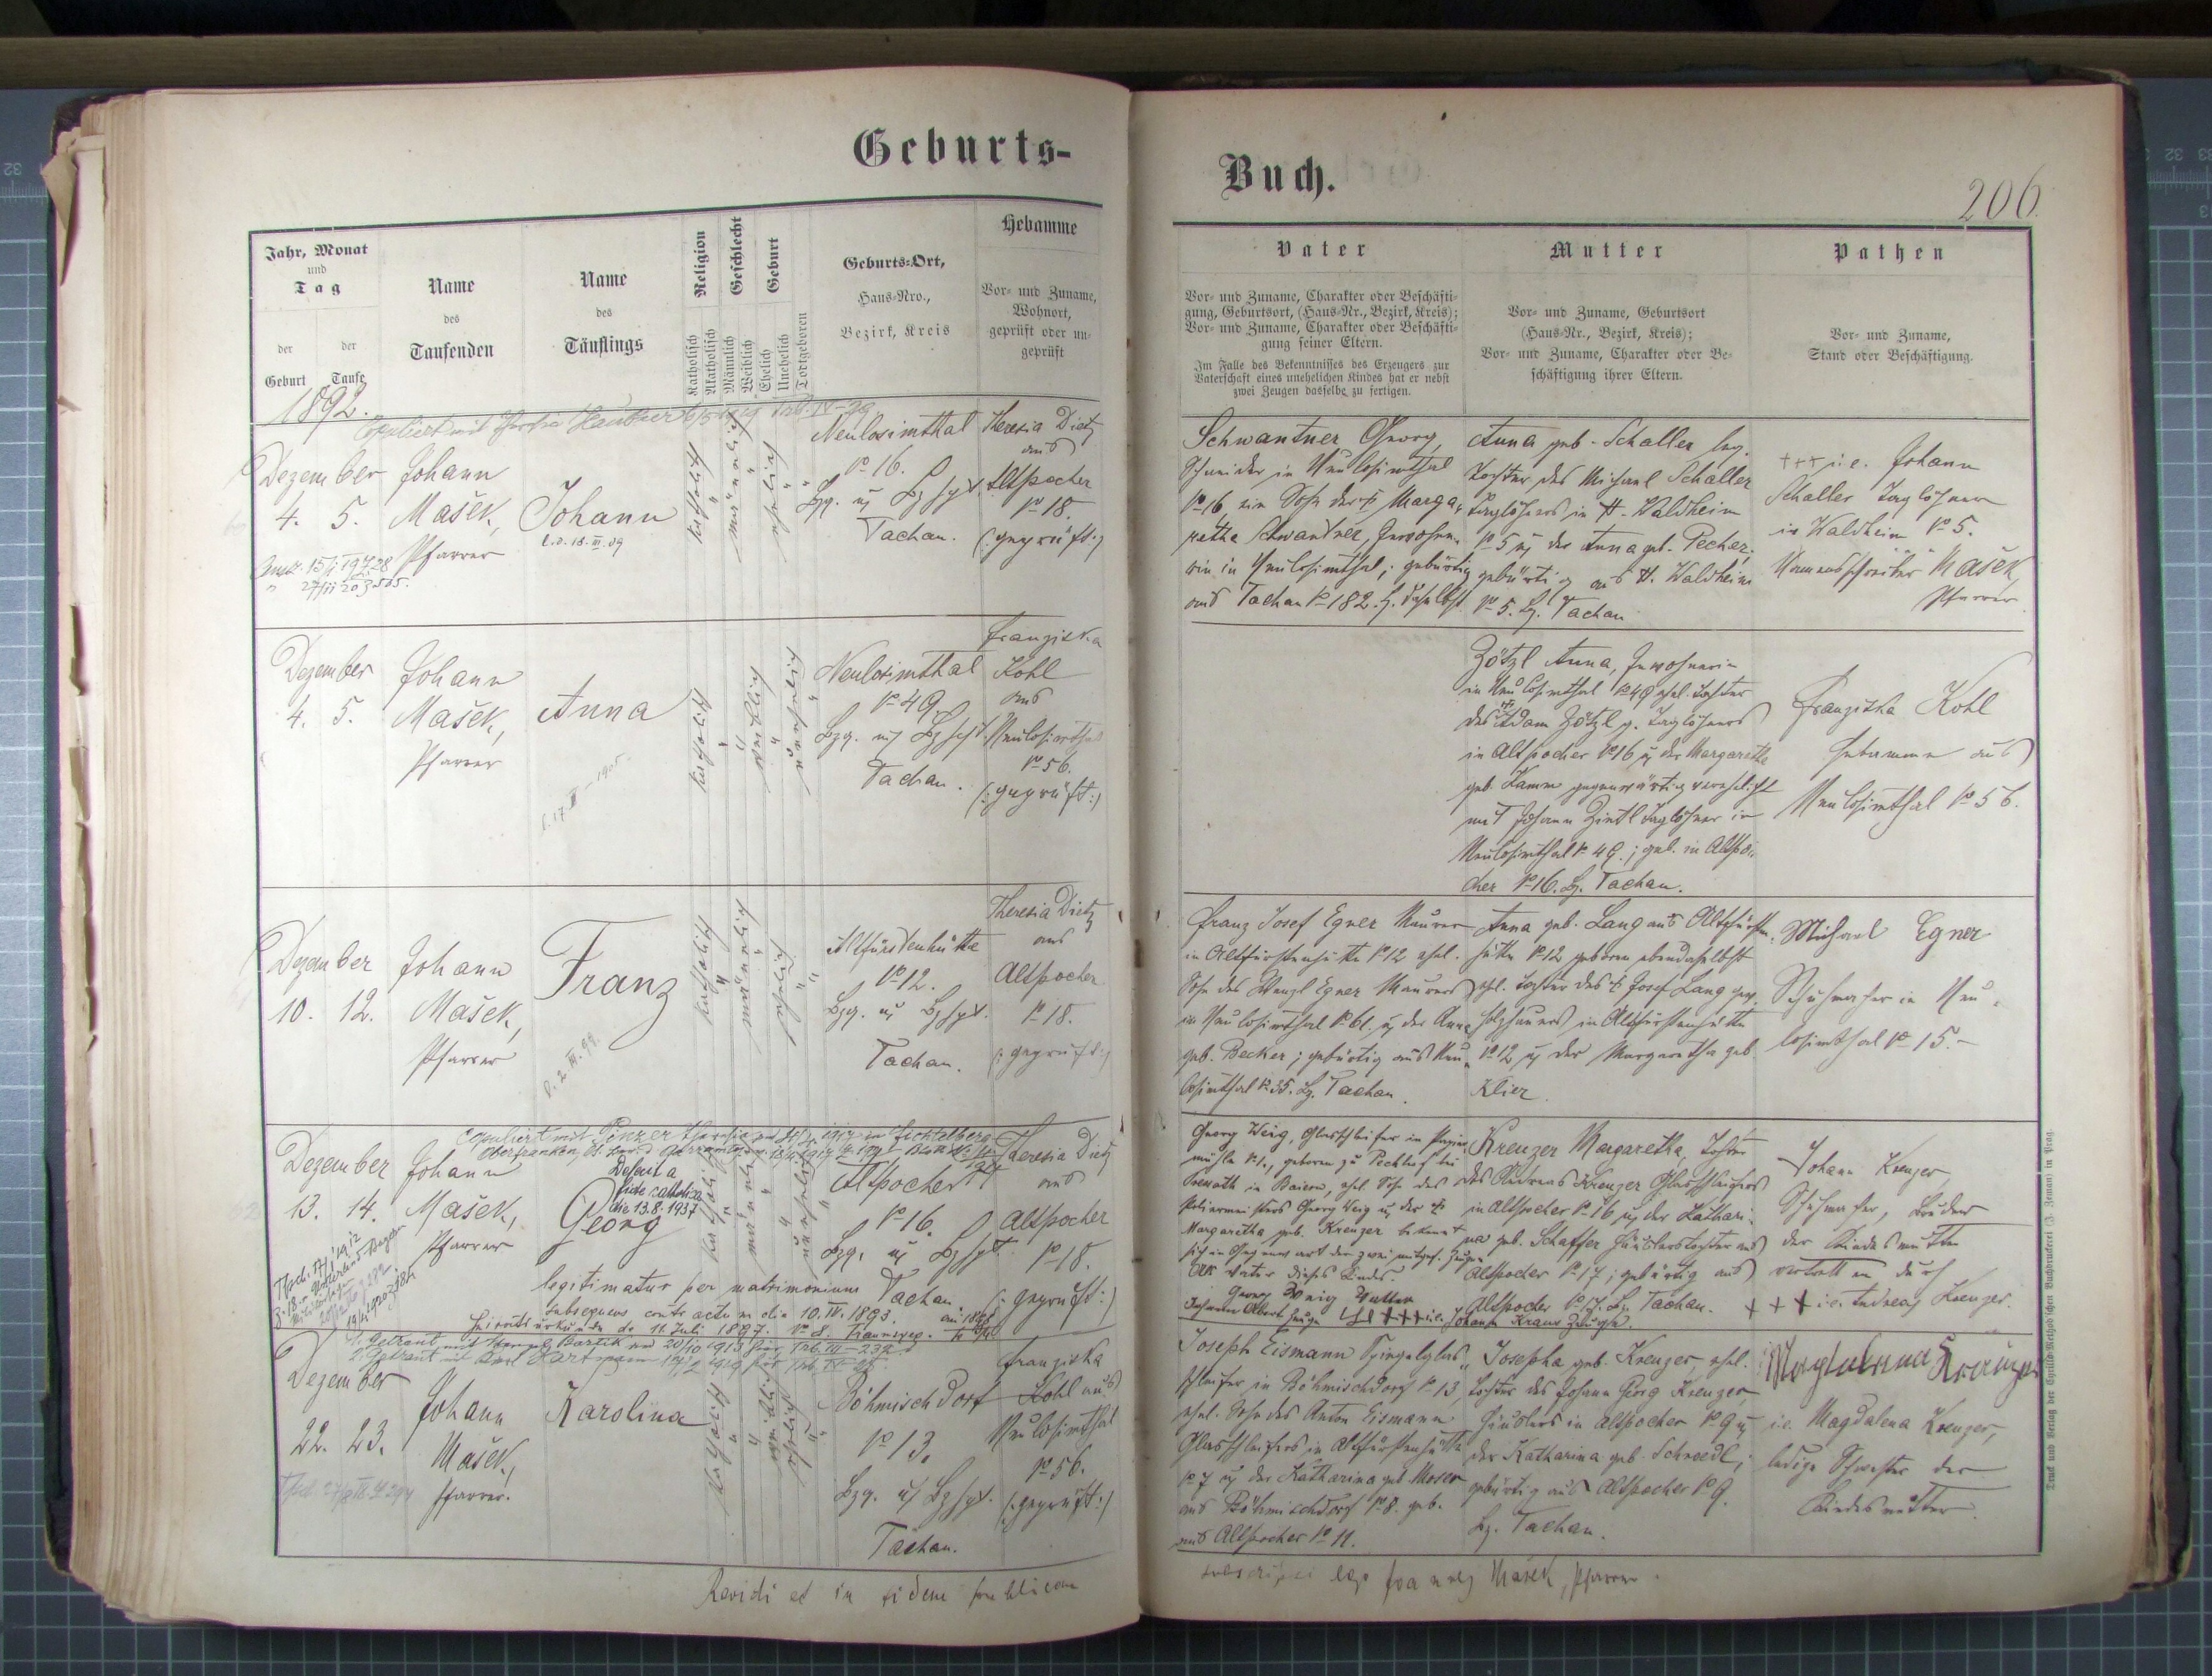 Geburts-
Jahr, Monat
und
Tag
der Geburt
der Taufe
Name
des
Taufenden
Name
des
Täuflings
Religion
Katholisch
Akatholisch
Geschlecht
Männlich
Weiblich
Geburt
Ehelich
Unehelich
Todtgeboren
Geburts-Ort,
Haus-Nro.,
Bezirk, Kreis
Hebamme
Vor- und Zuname,
Wohnort,
geprüft oder un-
geprüft
1892.
Dezember
4. 5.
Johann
Mašek,
Pfarrer
Johann
katholisch
männlich
ehelich
Neulosimthal
No 16.
Bzg. u. Bzhpt.
Tachau.
Theresia Dietz
aus
Altpocher
No 18.
(:geprüft:)
Dezember
4. 5.
Johann
Mašek,
Pfarrer
Anna
katholisch
weiblich
unehelich
Neulosimthal
No 49.
Bzg. u. Bzhpt.
Tachau.
Franziska
Kohl
aus
Neulosimthal
No 56.
(:geprüft:)
Dezember
10. 12.
Johann
Mašek,
Pfarrer
Franz
katholisch
männlich
ehelich
Altfürstenhütte
No 12.
Bzg. u. Bzhpt.
Tachau.
Theresia Dietz
aus
Altpocher
No 18.
(:geprüft:)
Dezember
13. 14.
Johann
Mašek,
Pfarrer
Defecit a
fide catholica
die 13.8.1937
Georg
legitimatur per matrimonium
subsequens contractum die 10. IV. 1893.
katholisch
männlich
unehelich
Altpocher
No 16.
Bzg. u. Bzhpt.
Tachau
Theresia Dietz
aus
Altpocher
No 18.
(:geprüft:)
Dezember
22. 23.
Johann
Mašek,
Pfarrer.
Karolina
katholisch
weiblich
ehelich
Böhmischdorf
No 13.
Bzg. u. Bzhpt.
Tachau.
Franziska
Kohl aus
Neulosimthal
No 56.
(:geprüft:)
Revidi et in fidem publicam
Buch.
206.
Vater
Vor- und Zuname, Charakter oder Beschäfti-
gung, Geburtsort, (Haus-Nr., Bezirk, Kreis);
Vor- und Zuname, Charakter oder Beschäfti-
gung seiner Eltern.
Im Falle des Bekenntnisses des Erzeugers zur
Vaterschaft eines unehelichen Kindes hat er nebst
zwei Zeugen dasselbe zu fertigen.
Mutter
Vor- und Zuname, Geburtsort
(Haus-Nr., Bezirk, Kreis);
Vor- und Zuname, Charakter oder Be-
schäftigung ihrer Eltern.
Pathen
Vor- und Zuname,
Stand oder Beschäftigung.
Schwantner Georg,
Schneider in Neulosimthal
No 16, ein Sohn der † Marga-
retha Schwantner, Inwohne-
rin in Neulosimthal; gebürtig
aus Tachau No 182. Bz. daselbst
Anna geb. Schaller
Tochter des Michael Schaller
Taglöhners in H. Waldheim
No 5 u. der Anna geb. Pecher;
gebürtig aus H. Waldheim
No 5. Bz. Tachau
+++ i.e. Johann
Schaller Taglöhner
in Waldheim No 5.
Namensschreiber Mašek,
Pfarrer
Zötzl Anna, Inwohnerin
in Neulosimthal No 49 ehel. Tochter
des † Adam Zötzl g. Taglöhners
in Altpocher No 16 u. der Margaretha
geb. Kamm gegenwärtig verehelicht
mit Johann Zintl Taglöhner in
Neulosimthal No 49.; geb. in Altpo-
cher No 16. Bz. Tachau.
Franziska Kohl
Hebamme aus
Neulosimthal No 56.
Franz Josef Egner Maurer
in Altfürstenhütte No 12 ehel.
Sohn des Wenzl Egner Maurers
in Neulosimthal No 61. u. der Anna
geb. Becker; gebürtig aus Neu-
losimthal No 35. Bz. Tachau.
Anna geb. Lang aus Altfürsten-
hütte No 12 geboren ebendaselbst
ehel. Tochter des † Josef Lang gew.
Holzhauers in Altfürstenhütte
No 12 u. der Margaretha geb.
Klier.
Michael Egner
Schuhmacher in Neu-
losimthal No 15.
Georg Weig, Glasschleifer in Papier-
mühle No 1., geboren zu Pechhof bei
in Baiern, ehel. Sohn des
Poliermeisters Georg Weig u. der †
Margaretha geb. Kreuzer bekennt
sich in Gegenwart der zwei mitgef. Zeugen
als Vater dieses Kindes.
Georg Weig Vatter
Kreuzer Margaretha, Tochter
des Andreas Kreuzer Glasschleifers
in Altpocher No 16 u. der Kathari-
na geb. Schaffer Häuslerstochter aus
Altpocher No 17; gebürtig aus
Altpocher No 17. Bz. Tachau.
+++ i.e. Johann Kraus Zeuge.
Johann Kreuzer,
Schuhmacher, Bruder
der Kindesmutter
vertreten durch
+++ i.e. Andreas Kreuzer.
Joseph Eismann Spiegelglas-
schleifer in Böhmischdorf No 13,
ehel. Sohn des Anton Eismann
Glasschleifers in Altfürstenhütte
No 7 u. der Katharina geb. Moser
aus Böhmischdorf No 8. geb.
aus Altpocher No 11.
Josepha geb. Kreuzer, ehel.
Tochter des Johann Georg Kreuzer,
Häuslers in Altpocher No 9 u.
der Katharina geb. Schroedl;
gebürtig aus Altpocher No 9.
Bz. Tachau.
Magdalena Kreuzer
i.e. Magdalena Kreuzer,
ledige Schwester der
Kindesmutter.
Mašek, Pfarrer.
Druck und Verlag der Cyrillo-Method'schen Buchdruckerei (J. Zeman) in Prag.